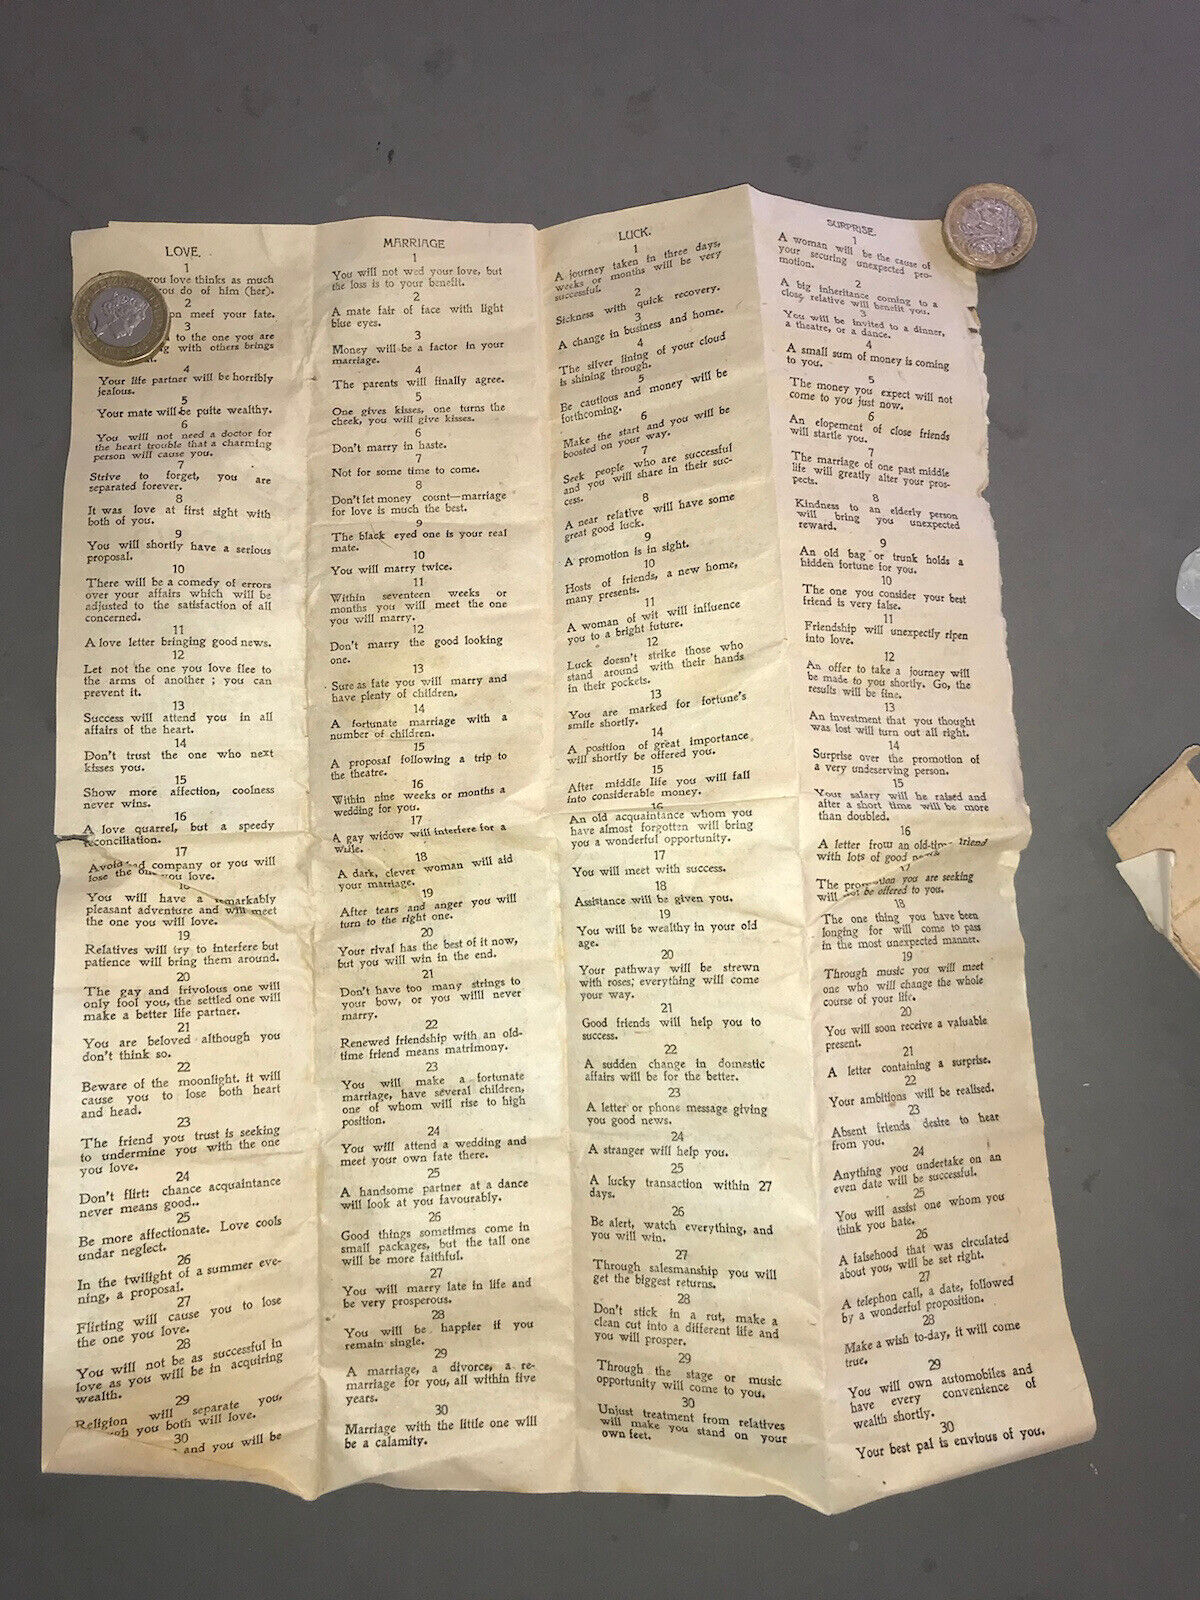 LOVE.
1
you love thinks as much
you do of him (her).
2
meet your fate.
3
to the one you are
with others brings
4
Your life partner will be horribly
jealous.
5
Your mate will be quite wealthy.
6
You will not need a doctor for
the heart trouble that a charming
person will cause you.
7
Strive to forget, you are
separated forever.
8
It was love at first sight with
both of you.
9
You will shortly have a serious
proposal.
10
There will be a comedy of errors
over your affairs which will be
adjusted to the satisfaction of all
concerned.
11
A love letter bringing good news.
12
Let not the one you love flee to
the arms of another ; you can
prevent it.
13
Success will attend you in all
affairs of the heart.
14
Don't trust the one who next
kisses you.
15
Show more affection, coolness
never wins.
16
A love quarrel, but a speedy
reconciliation.
17
Avoid bad company or you will
lose the one you love.
18
You will have a remarkably
pleasant adventure and will meet
the one you will love.
19
Relatives will try to interfere but
patience will bring them around.
20
The gay and frivolous one will
only fool you, the settled one will
make a better life partner.
21
You are beloved although you
don't think so.
22
Beware of the moonlight. it will
cause you to lose both heart
and head.
23
The friend you trust is seeking
to undermine you with the one
you love.
24
Don't flirt: chance acquaintance
never means good..
25
Be more affectionate. Love cools
undar neglect.
26
In the twilight of a summer eve-
ning, a proposal.
27
Flirting will cause you to lose
the one you love.
28
You will not be as successful in
love as you will be in acquiring
wealth.
29
Religion will separate you,
you both will love.
30
and you will be
MARRIAGE
1
You will not wed your love, but
the loss is to your benefit.
2
A mate fair of face with light
blue eyes.
3
Money will be a factor in your
marriage.
4
The parents will finally agree.
5
One gives kisses, one turns the
cheek, you will give kisses.
6
Don't marry in haste.
7
Not for some time to come.
8
Don't let money count—marriage
for love is much the best.
9
The black eyed one is your real
mate.
10
You will marry twice.
11
Within seventeen weeks or
months you will meet the one
you will marry.
12
Don't marry the good looking
one.
13
Sure as fate you will marry and
have plenty of children.
14
A fortunate marriage with a
number of children.
15
A proposal following a trip to
the theatre.
16
Within nine weeks or months a
wedding for you.
17
A gay widow will interfere for a
while.
18
A dark, clever woman will aid
your marriage.
19
After tears and anger you will
turn to the right one.
20
Your rival has the best of it now,
but you will win in the end.
21
Don't have too many strings to
your bow, or you willl never
marry.
22
Renewed friendship with an old-
time friend means matrimony.
23
You will make a fortunate
marriage, have several children,
one of whom will rise to high
position.
24
You will attend a wedding and
meet your own fate there.
25
A handsome partner at a dance
will look at you favourably.
26
Good things sometimes come in
small packages, but the tall one
will be more faithful.
27
You will marry late in life and
be very prosperous.
28
You will be happier if you
remain single.
29
A marriage, a divorce, a re-
marriage for you, all within five
years.
30
Marriage with the little one will
be a calamity.
LUCK.
1
A journey taken in three days,
weeks or months will be very
successful.
2
Sickness with quick recovery.
3
A change in business and home.
4
The silver lining of your cloud
is shining through.
5
Be cautious and money will be
forthcoming.
6
Make the start and you will be
boosted on your way.
7
Seek people who are successful
and you will share in their suc-
cess.
8
A near relative will have some
great good luck.
9
A promotion is in sight.
10
Hosts of friends, a new home,
many presents.
11
A woman of wit will influence
you to a bright future.
12
Luck doesn't strike those who
stand around with their hands
in their pockets.
13
You are marked for fortune's
smile shortly.
14
A position of great importance
will shortly be offered you.
15
After middle life you will fall
into considerable money.
16
An old acquaintance whom you
have almost forgotten will bring
you a wonderful opportunity.
17
You will meet with success.
18
Assistance will be given you.
19
You will be wealthy in your old
age.
20
Your pathway will be strewn
with roses; everything will come
your way.
21
Good friends will help you to
success.
22
A sudden change in domestic
affairs will be for the better.
23
A letter or phone message giving
you good news.
24
A stranger will help you.
25
A lucky transaction within 27
days.
26
Be alert, watch everything, and
you will win.
27
Through salesmanship you will
get the biggest returns.
28
Don't stick in a rut, make a
clean cut into a different life and
you will prosper.
29
Through the stage or music
opportunity will come to you.
30
Unjust treatment from relatives
will make you stand on your
own feet.
SURPRISE.
1
A woman will be the cause of
your securing unexpected pro-
motion.
2
A big inheritance coming to a
close relative will benefit you.
3
You will be invited to a dinner,
a theatre, or a dance.
4
A small sum of money is coming
to you.
5
The money you expect will not
come to you just now.
6
An elopement of close friends
will startle you.
7
The marriage of one past middle
life will greatly alter your pros-
pects.
8
Kindness to an elderly person
will bring you unexpected
reward.
9
An old bag or trunk holds a
hidden fortune for you.
10
The one you consider your best
friend is very false.
11
Friendship will unexpectly ripen
into love.
12
An offer to take a journey will
be made to you shortly. Go, the
results will be fine.
13
An investment that you thought
was lost will turn out all right.
14
Surprise over the promotion of
a very undeserving person.
15
Your salary will be raised and
after a short time will be more
than doubled.
16
A letter from an old-time friend
with lots of good news.
17
The promotion you are seeking
will not be offered to you.
18
The one thing you have been
longing for will come to pass
in the most unexpected manner.
19
Through music you will meet
one who will change the whole
course of your life.
20
You will soon receive a valuable
present.
21
A letter containing a surprise.
22
Your ambitions will be realised.
23
Absent friends desire to hear
from you.
24
Anything you undertake on an
even date will be successful.
25
You will assist one whom you
think you hate.
26
A falsehood that was circulated
about you, will be set right.
27
A telephon call, a date, followed
by a wonderful proposition.
28
Make a wish to-day, it will come
true.
29
You will own automobiles and
have every convenience of
wealth shortly.
30
Your best pal is envious of you.